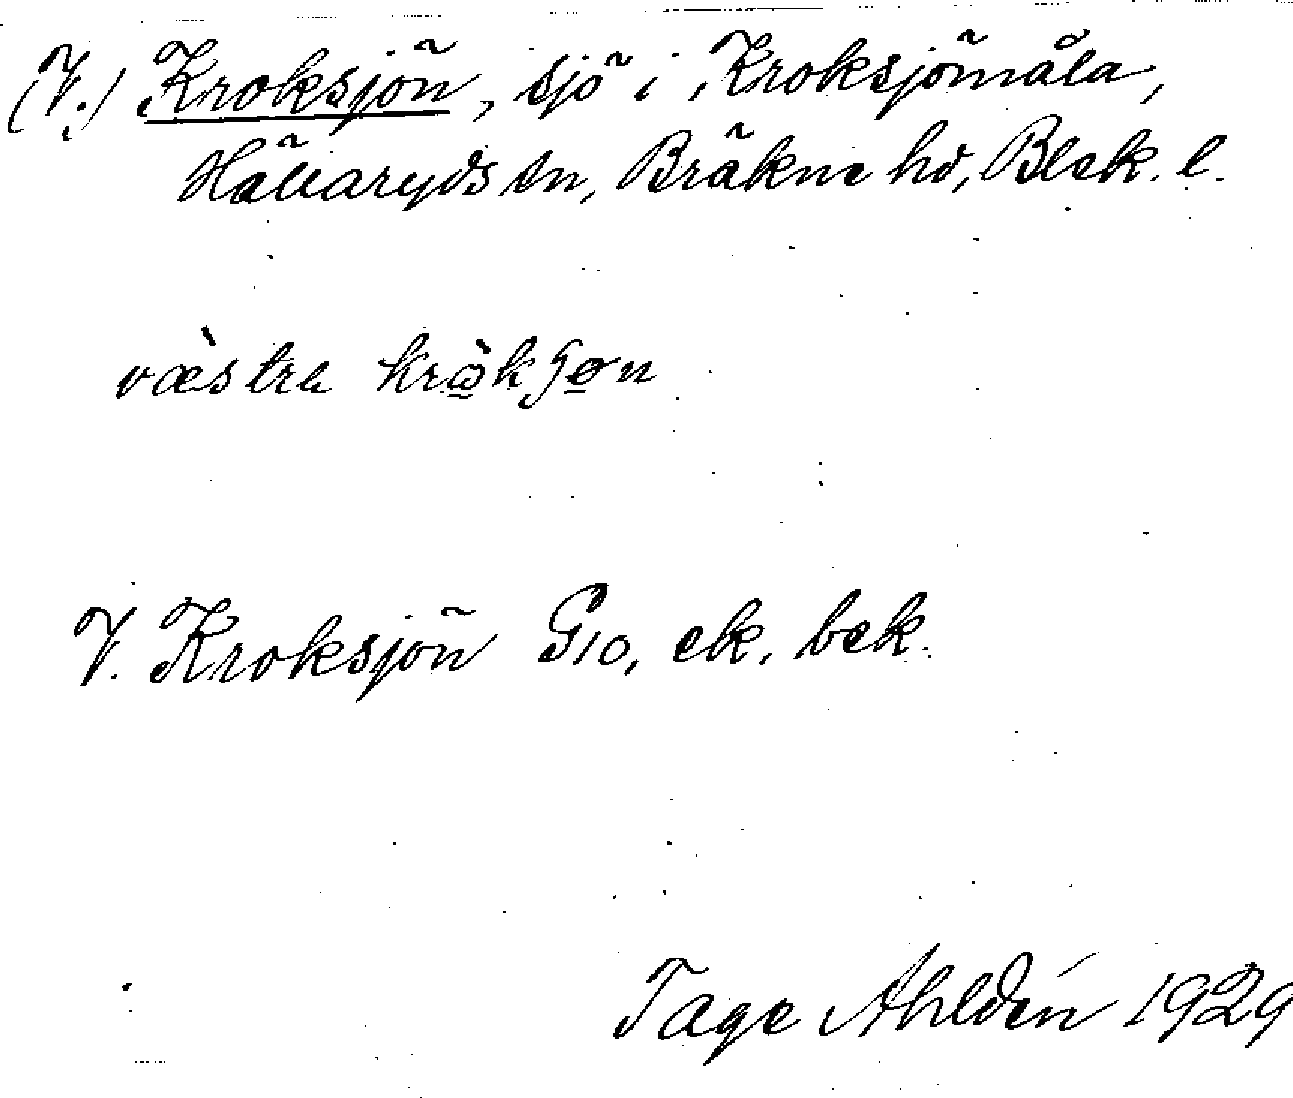 (V.) Kroksjön, sjö i Kroksjömåla,
Hällaryds sn, Bräkne hd, Blek. l.
væ̀stra krὼkʃøn
V. Kroksjön G10, ek, bek.
Tage Ahldén 1929